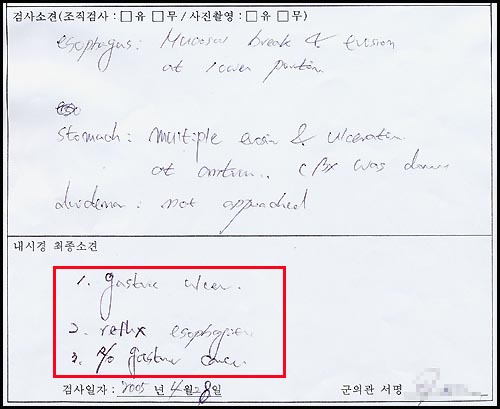 검사소견(조직검사 : □ 유 □ 무 / 사진촬영 : □ 유 □ 무)
esophagus : Mucosal break & erosion
at lower portion
stomach : multiple erosion & ulceration
at antrum.. c Bx was done
duodenum : not approached
내시경 최종소견
1. gastric ulcer.
2. reflux esophagitis
3. r/o gastric cancer.
검사일자 : 2005 년 4 월 28 일
군의관 서명